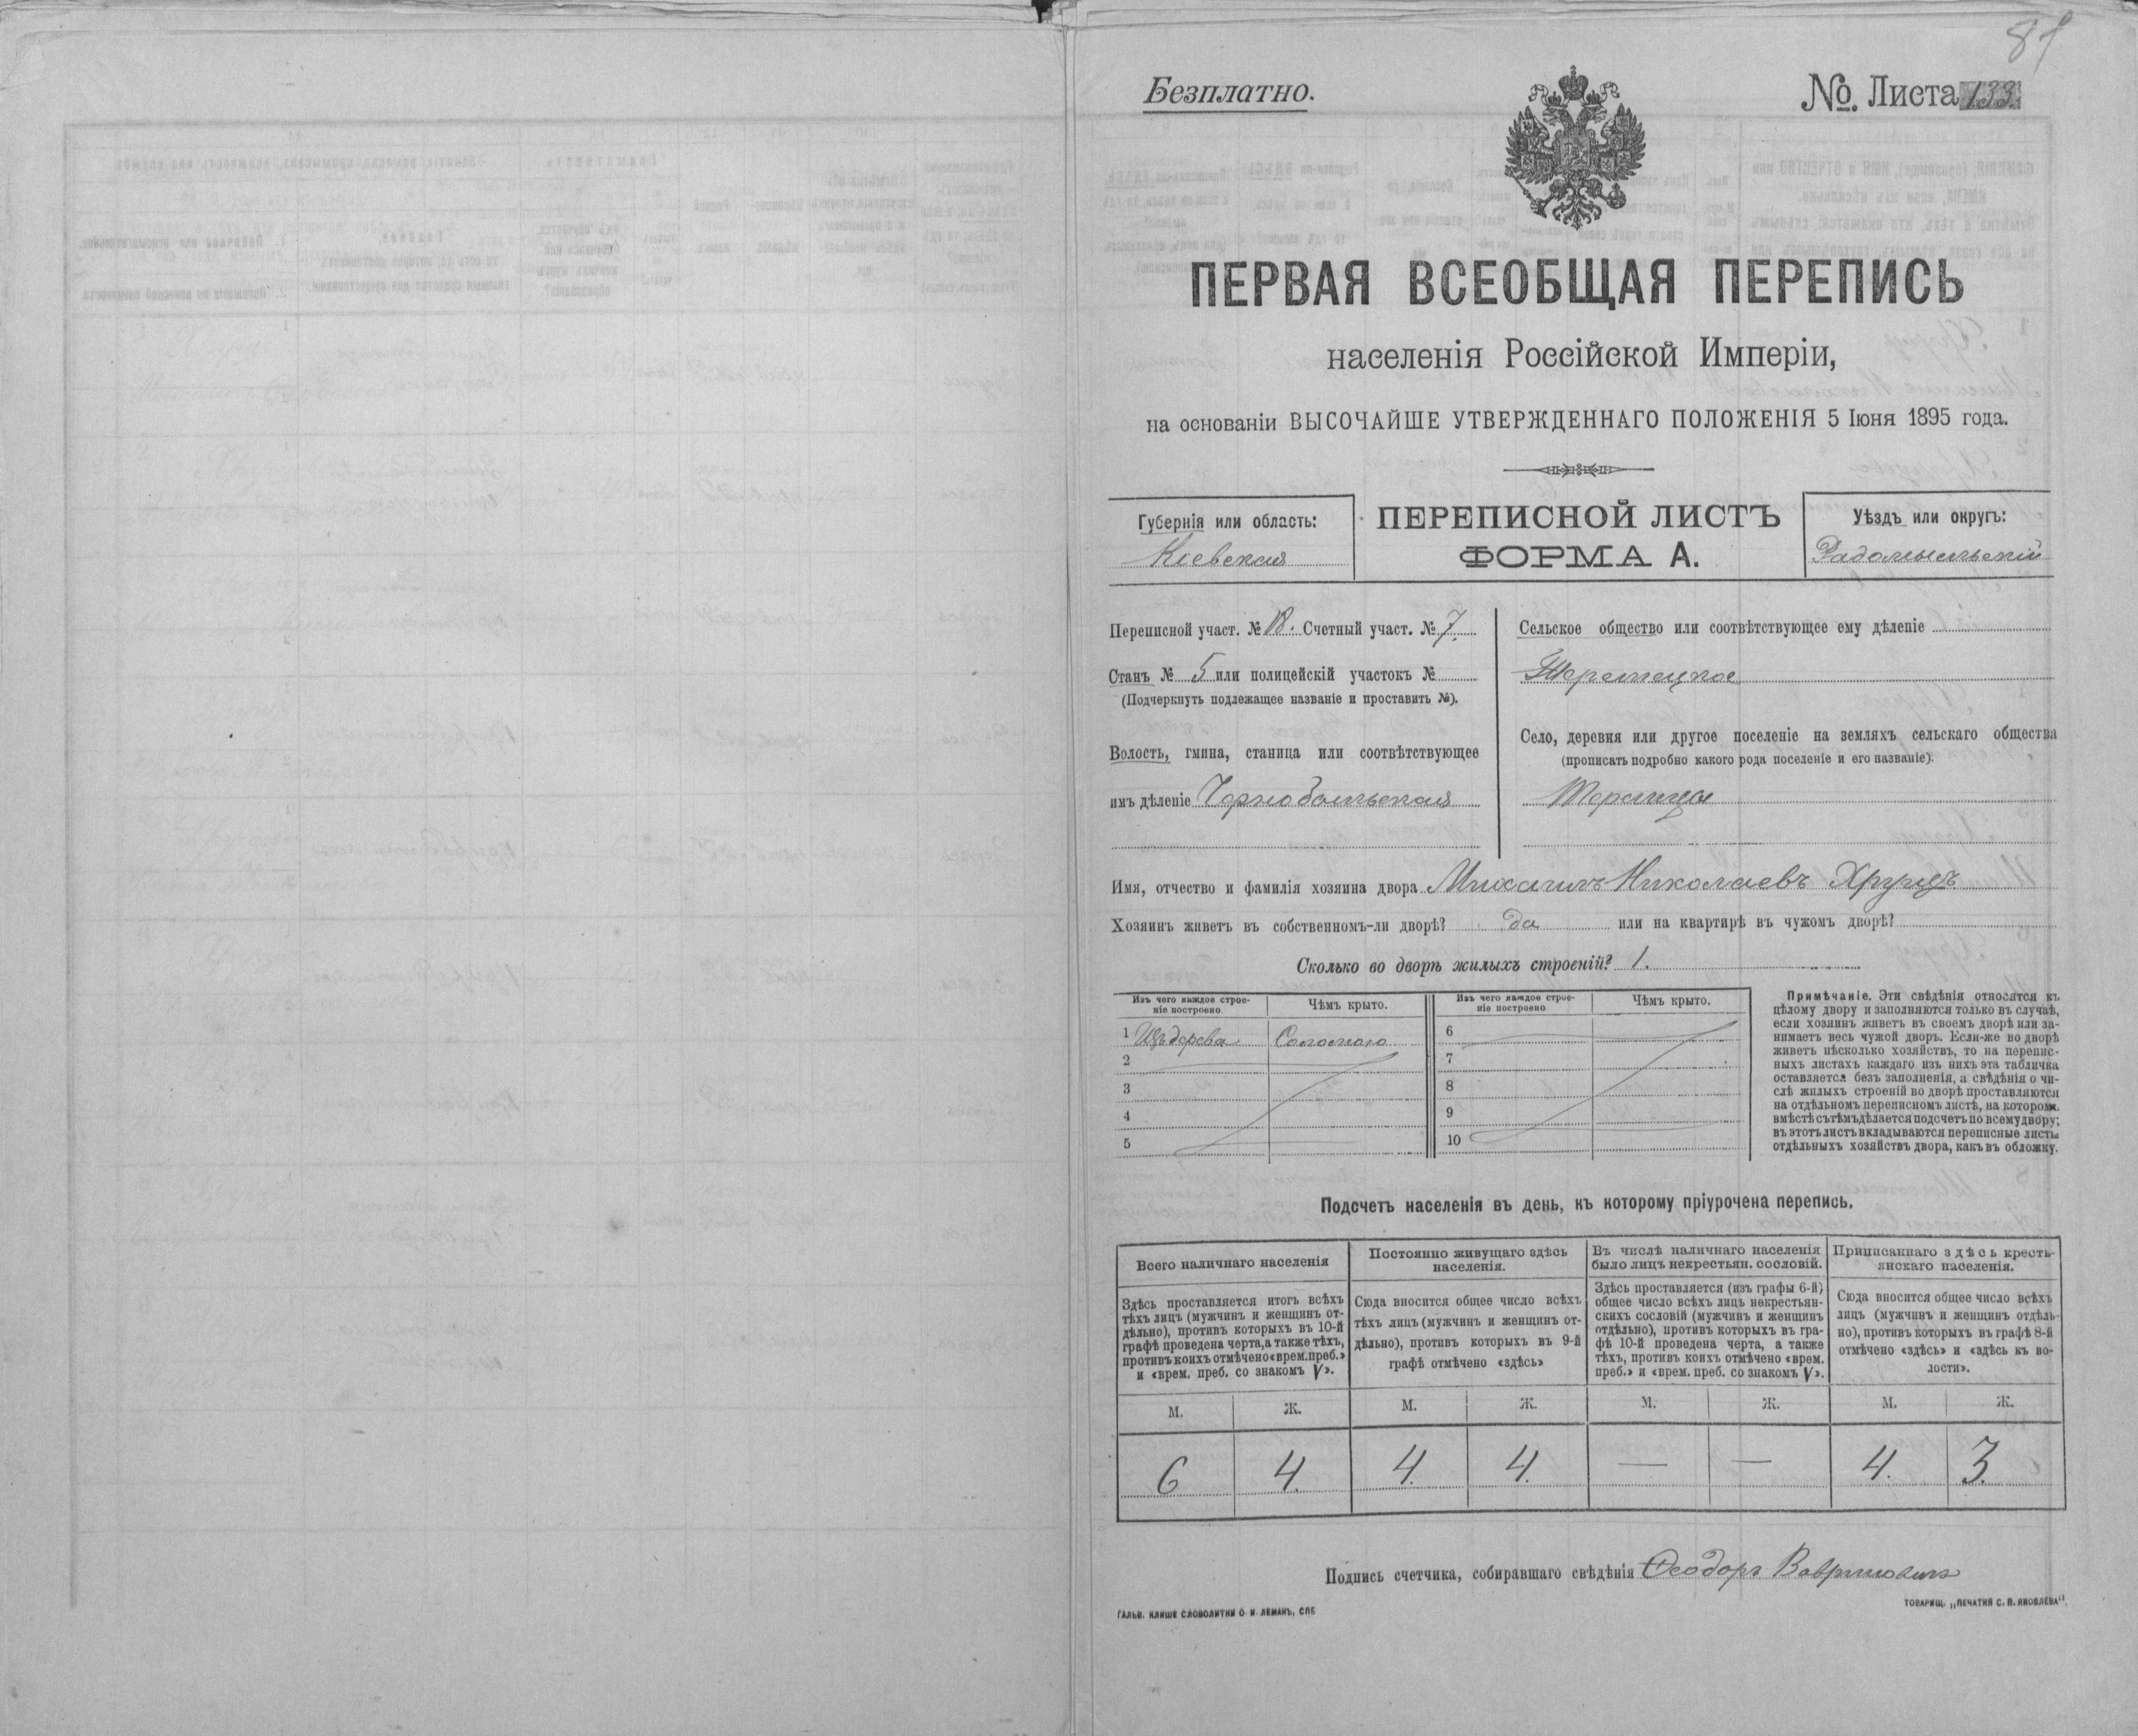 87
Безплатно.
№. Листа 133.
ПЕРВАЯ ВСЕОБЩАЯ ПЕРЕПИСЬ
населенія Россійской Имперіи,
на основаніи ВЫСОЧАЙШЕ УТВЕРЖДЕННАГО ПОЛОЖЕНІЯ 5 Іюня 1895 года.
Губернія или область:
Кіевская
ПЕРЕПИСНОЙ ЛИСТЪ
ФОРМА А.
Уѣздъ или округъ:
Радомысльскій
Переписной участ. № Счетный участ. № 7.
Станъ № 5 или полицейскій участокъ №
(Подчеркнуть подлежащее названіе и проставить №).
Волость, гмина, станица или соотвѣтствующее
имъ дѣленіе Чернобыльская
Сельское общество или соотвѣтствующее ему дѣленіе
Теремецкое
Село, деревня или другое поселеніе на земляхъ сельскаго общества
(прописать подробно какого рода поселеніе и его названіе).
Теремцы
Имя, отчество и фамилія хозяина двора Михаилъ Николаевъ Хрущъ
Хозяинъ живетъ въ собственномъ-ли дворѣ? да или на квартирѣ въ чужомъ дворѣ?
Сколько во дворѣ жилыхъ строеній? 1.
Изъ чего каждое строе-
ніе построено
Чѣмъ крыто.
1 Изъ дерева Соломою
2
3
4
5
Изъ чего каждое строе-
ніе построено
Чѣмъ крыто.
6
7
8
9
10
Примѣчаніе. Эти свѣдѣнія относятся къ
цѣлому двору и заполняются только въ случаѣ,
если хозяинъ живетъ въ своемъ дворѣ или за-
нимаетъ весь чужой дворъ. Если-же во дворѣ
живетъ нѣсколько хозяйствъ, то на перепис-
ныхъ листахъ каждаго изъ нихъ эта табличка
оставляется безъ заполненія, а свѣдѣнія о чи-
слѣ жилыхъ строеній во дворѣ проставляются
на отдѣльномъ переписномъ листѣ, на которомъ
вмѣстѣ съ тѣмъ дѣлается подсчетъ по всему двору;
въ этотъ листъ вкладываются переписные листы
отдѣльныхъ хозяйствъ двора, какъ въ обложку.
Подсчетъ населенія въ день, къ которому пріурочена перепись.
Всего наличнаго населенія
Здѣсь проставляется итогъ всѣхъ
тѣхъ лицъ (мужчинъ и женщинъ от-
дѣльно), противъ которыхъ въ 10-й
графѣ проведена черта, а также тѣхъ,
противъ коихъ отмѣчено «врем. преб.»
и «врем. преб. со знакомъ V».
Постоянно живущаго здѣсь
населенія.
Сюда вносится общее число всѣхъ
тѣхъ лицъ (мужчинъ и женщинъ от-
дѣльно), противъ которыхъ въ 9-й
графѣ отмѣчено «здѣсь»
Въ числѣ наличнаго населенія
было лицъ некрестьян. сословій.
Здѣсь проставляется (изъ графы 6-й)
общее число всѣхъ лицъ некрестьян-
скихъ сословій (мужчинъ и женщинъ
отдѣльно), противъ которыхъ въ гра-
фѣ 10-й проведена черта, а также
тѣхъ, противъ коихъ отмѣчено «врем.
преб.» и «врем. преб. со знакомъ V».
Приписаннаго здѣсь кресть-
янскаго населенія.
Сюда вносится общее число всѣхъ
лицъ (мужчинъ и женщинъ отдѣль-
но), противъ которыхъ въ графѣ 8-й
отмѣчено «здѣсь» и «здѣсь къ во-
лости».
М. Ж. М. Ж. М. Ж. М. Ж.
6 4. 4. 4. — — 4. 3.
Подпись счетчика, собиравшаго свѣдѣнія Ѳеодоръ
ГАЛЬВ. КЛИШЕ СЛОВОЛИТНИ О. И. ЛЕМАНЪ, СПБ
ТОВАРИЩ. „ПЕЧАТНЯ С. П. ЯКОВЛЕВА"